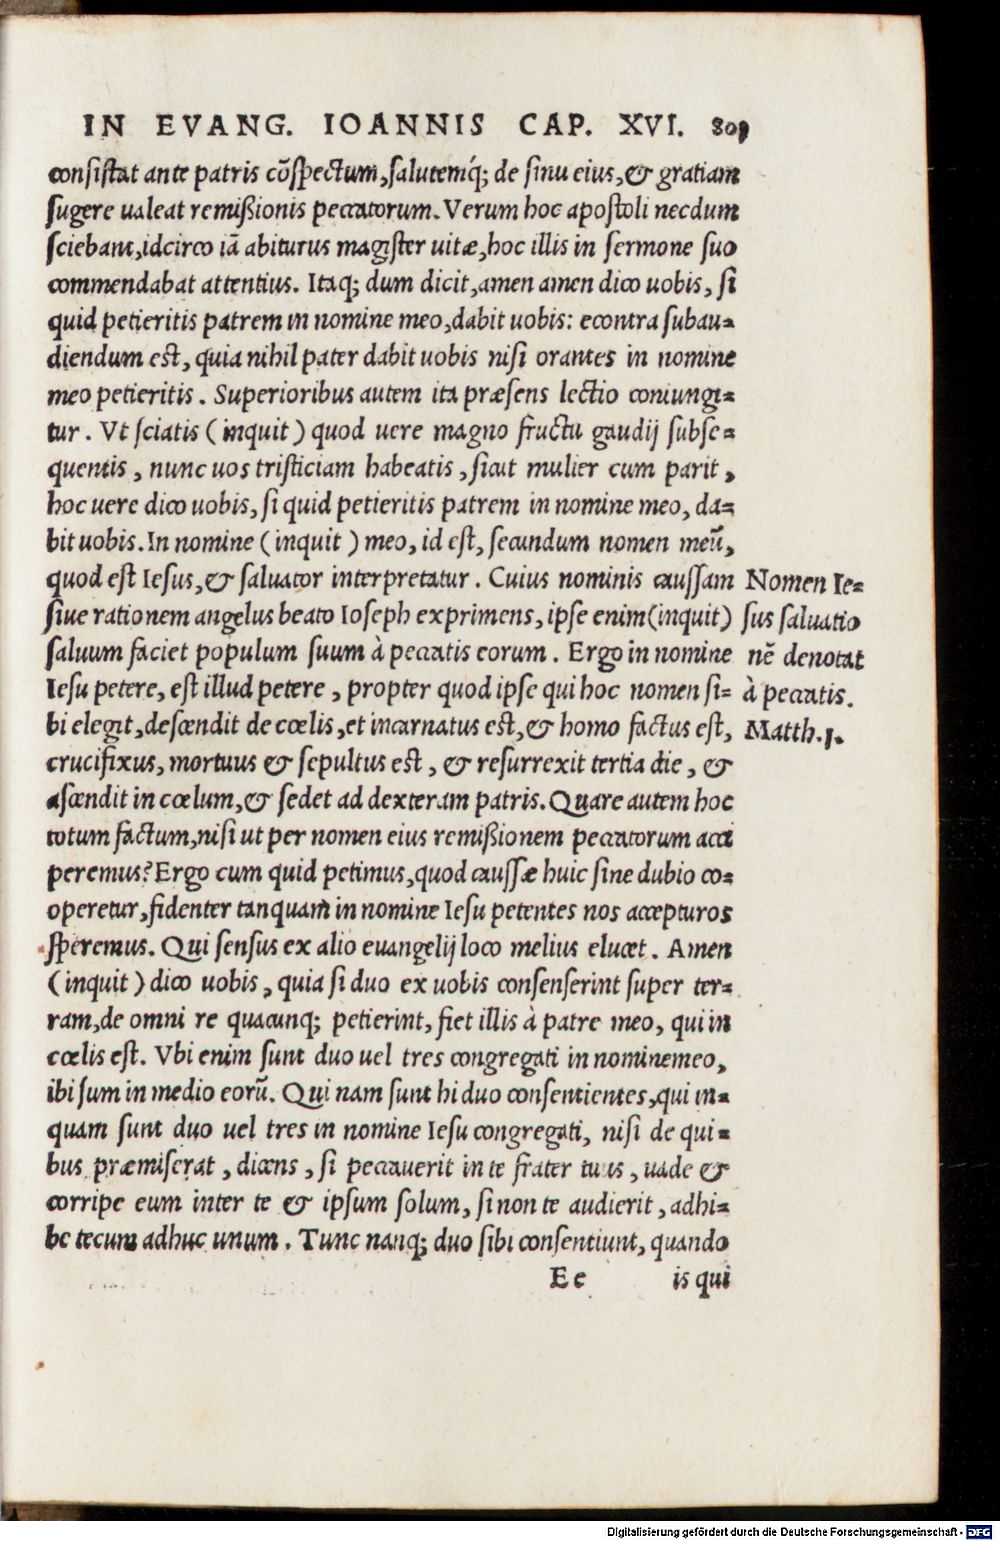 IN EVANG. IOANNIS CAP. XVI. 809
consistat ante patris cōspectum, salutemq́; de sinu eius, & gratiam
sugere ualeat remißionis peccatorum. Verum hoc apostoli necdum
sciebant, idcirco iā abiturus magister uitæ, hoc illis in sermone suo
commendabat attentius. Itaq; dum dicit, amen amen dico uobis, si
quid petieritis patrem in nomine meo, dabit uobis: econtra subau=
diendum est, quia nihil pater dabit uobis nisi orantes in nomine
meo petieritis. Superioribus autem ita præsens lectio coniungi=
tur. Vt sciatis (inquit) quod uere magno fructu gaudij subse=
quentis, nunc uos tristiciam habeatis, sicut mulier cum parit,
hoc uere dico uobis, si quid petieritis patrem in nomine meo, da=
bit uobis. In nomine (inquit) meo, id est, secundum nomen meū,
quod est Iesus, & saluator interpretatur. Cuius nominis caussam
siue rationem angelus beato Ioseph exprimens, ipse enim (inquit)
saluum faciet populum suum à peccatis eorum. Ergo in nomine
Iesu petere, est illud petere, propter quod ipse qui hoc nomen si=
bi elegit, descendit de cœlis, et incarnatus est, & homo factus est,
crucifixus, mortuus & sepultus est, & resurrexit tertia die, &
ascendit in cœlum, & sedet ad dexteram patris. Quare autem hoc
totum factum, nisi ut per nomen eius remißionem peccatorum acci
peremus? Ergo cum quid petimus, quod caussæ huic sine dubio co=
operetur, fidenter tanquam in nomine Iesu petentes nos accepturos
speremus. Qui sensus ex alio euangelij loco melius elucet. Amen
(inquit) dico uobis, quia si duo ex uobis consenserint super ter=
ram, de omni re quacunq; petierint, fiet illis à patre meo, qui in
cœlis est. Vbi enim sunt duo uel tres congregati in nomine meo,
ibi sum in medio eorū. Qui nam sunt hi duo consentientes, qui in=
quam sunt duo uel tres in nomine Iesu congregati, nisi de qui=
bus præmiserat, dicens, si peccauerit in te frater tuus, uade &
corripe eum inter te & ipsum solum, si non te audierit, adhi=
be tecum adhuc unum. Tunc nanq; duo sibi consentiunt, quando
Ee is qui
Nomen Ie=
sus saluatio
nē denotat
à peccatis.
Matth.1.
Digitalisierung gefördert durch die Deutsche Forschungsgemeinschaft - DFG